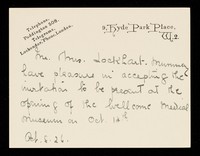 Telephone,
Paddington 308.
Telegrams,
Lockhudon, Phone, London.
9, Hyde Park Place,
W.2.
Mr. Mrs. Lockhart Mummery
have pleasure in accepting the
invitation to be present at the
opening of the Wellcome Medical
Museum on Oct 14th
6.26.